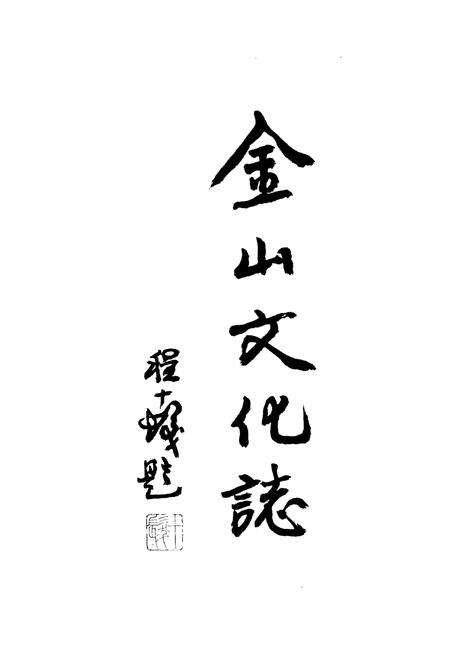 金山文化誌
程十髮題